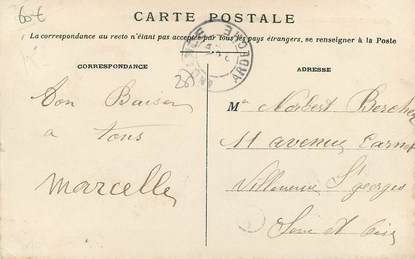 60€
CARTE POSTALE
La correspondance au recto n'étant pas acceptée par tous les pays étrangers, se renseigner à la Poste
CORRESPONDANCE
ADRESSE
Bon Baiser
a tous
Marcelle
Mr Norbert
11 avenue Carnot
Villeneuve St georges
Seine et Oise